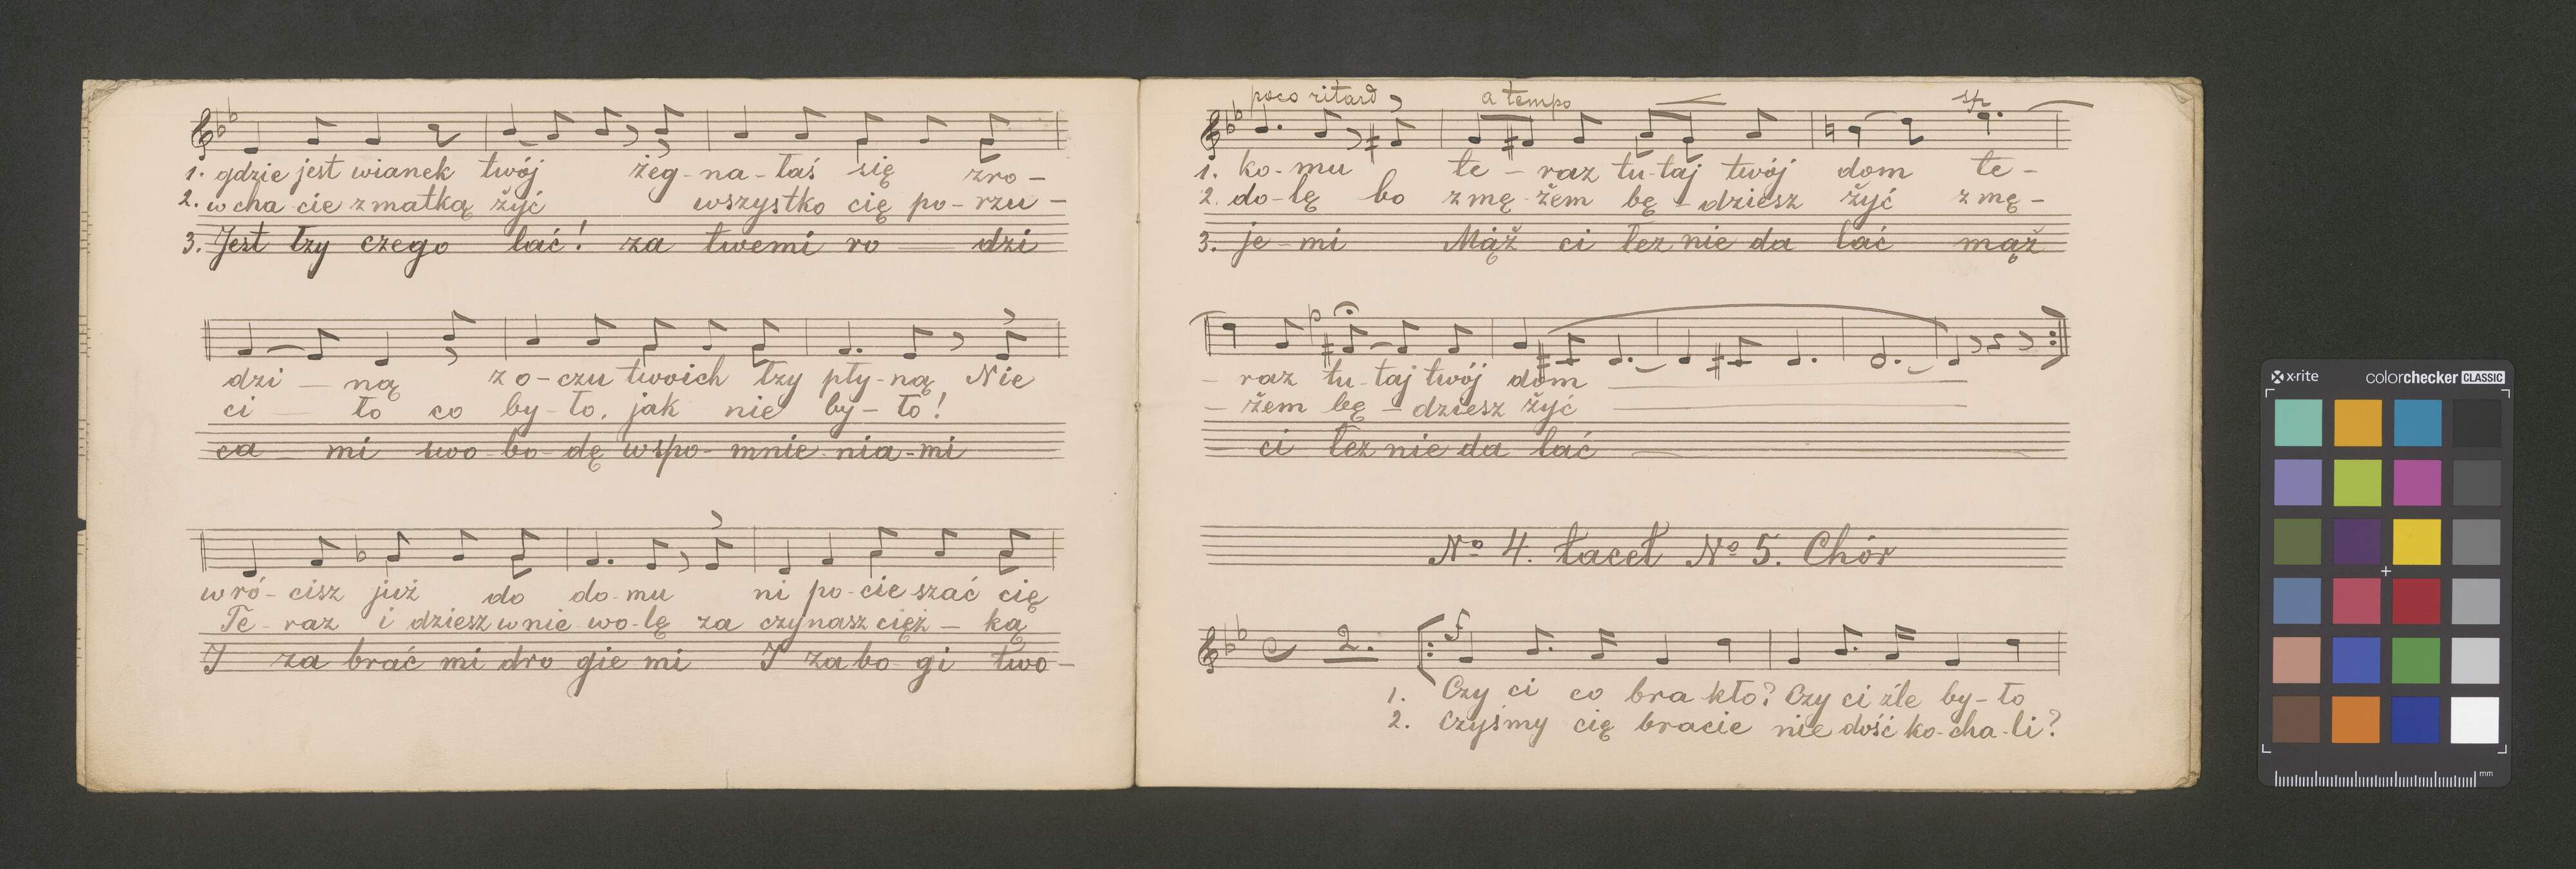 1. gdzie jest wianek twój żeg-na-łaś się zro-
2. w cha cie z matką żyć wszystko cię po-rzu-
3. Jest łzy czego lać! za twemi ro dzi
dzi - ną z o-czu twoich łzy pły-ną Nie
ci - ło co by-ło, jak nie by-ło!
ca mi swo-bo-dę wspo-mnie-nia-mi
wró-cisz już do do-mu ni po-cie szać cię
Te-raz i dziesz w nie-wo-lę za czynasz cięż-ką
I za brać mi dro gie mi I za bo gi two-
poco ritard a tempo sf
1. ko-mu te-raz tu-taj twój dom te-
2. do-lę bo z mę-żem bę-dziesz żyć z mę-
3. je-mi Mąż ci łez nie da lać mąż
- raz tu-taj twój dom
- żem bę-dziesz żyć
ci łez nie da lać
No 4. tacet No 5. Chór
2. f
1. Czy ci co bra kło? Czy ci źle by-ło
2. Czyśmy cię bracie nie dość ko-cha-li?
x-rite colorchecker CLASSIC
mm